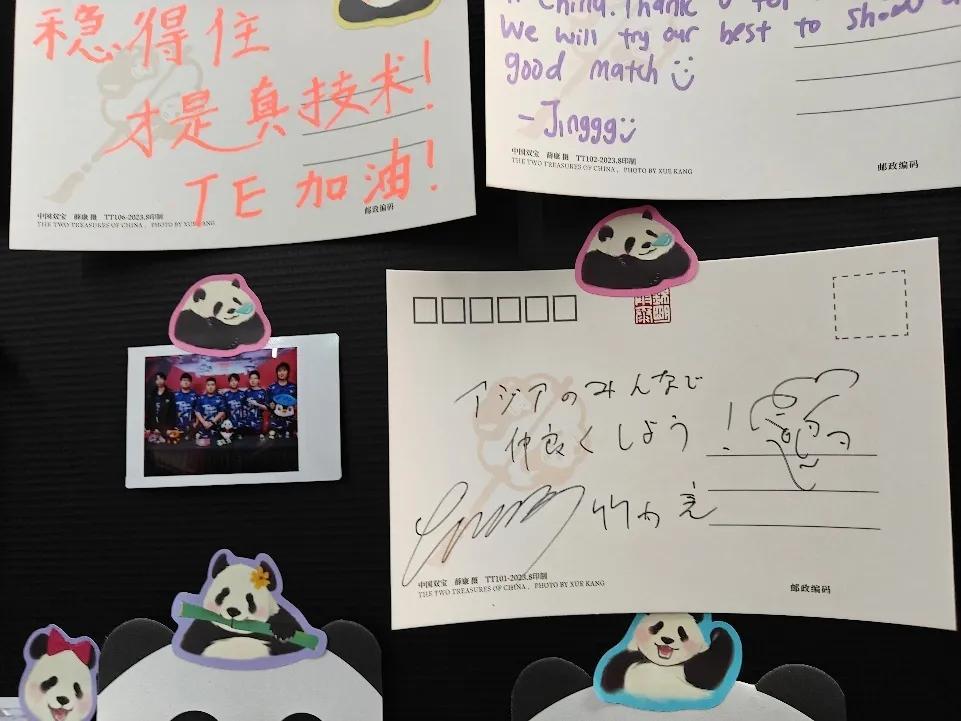 稳得住
才是真技术!
TE 加油!
中国双宝 薛康 摄 TT106-2023.8印制
THE TWO TREASURES OF CHINA, PHOTO BY XUE KANG
邮政编码
China. Thank u for
We will try our best to show a
good match
- Jinggg
中国双宝 薛康 摄 TT102-2023.8印制
THE TWO TREASURES OF CHINA, PHOTO BY XUE KANG
邮政编码
アジアのみんなで
仲良くしよう!
竹内
中国双宝 薛康 摄 TT101-2023.8印制
THE TWO TREASURES OF CHINA, PHOTO BY XUE KANG
邮政编码